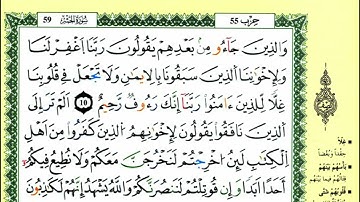 59 سُورَةُ الحَشْرِ حِزْب 55
وَالذِينَ جَآءُو مِنۢ بَعْدِهِمْ يَقُولُونَ رَبَّنَا اَغْفِرْ لَنَا
وَلِإِخْوَٰنِنَا اَلذِينَ سَبَقُونَا بِالِايمَٰنِ وَلَا تَجْعَلْ فِے قُلُوبِنَا
غِلّٗا لِّلذِينَ ءَامَنُواْ رَبَّنَآ إِنَّكَ رَءُوفٞ رَّحِيمٌ 10 اَلَمْ تَرَ إِلَى
اَلذِينَ نَافَقُواْ يَقُولُونَ لِإِخْوَٰنِهِمُ اُلذِينَ كَفَرُواْ مِنَ اَهْلِ
اِلْكِتَٰبِ لَئِنُ اخْرِجْتُمْ لَنَخْرُجَنَّ مَعَكُمْ وَلَا نُطِيعُ فِيكُمُۥٓ
أَحَداً اَبَداٗ وَإِن قُوتِلْتُمْ لَنَنصُرَنَّكُمْ وَاللَّهُ يَشْهَدُ إِنَّهُمْ لَكَٰذِبُونَ
غِلّاً
حِقْداً وَبُغْضاً